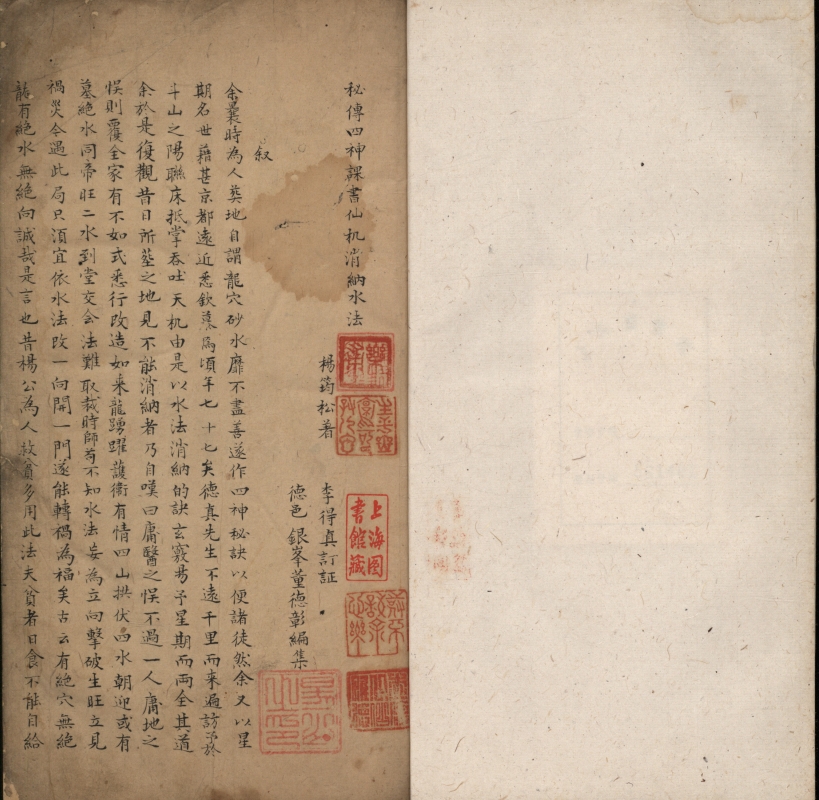 秘傳四神課書仙机消納水法
楊筠松著
李得真訂証
德邑銀峯董德彰編集
叙
余曩時為人葬地自謂龍穴砂水靡不盡善遂作四神秘訣以便諸徒然余又以星
期名世藉甚京都遠近悉欽慕焉頃年七十七矣德真先生不遠千里而来遍訪予於
斗山之陽聯床抵掌吞吐天机由是以水法消納的訣玄竅若予星期而两全其道
余於是復觀昔日所塟之地見不能消納者乃自嘆曰庸醫之悮不過一人庸地之
悮則覆全家有不如式悉行改造如来龍踴躍護衛有情四山拱伏凸水朝迎或有
墓絶水同帝旺二水到堂交会法難取裁時師苟不知水法妄為立向擊破生旺立見
禍災今遇此局只須宜依水法改一向開一門遂能轉禍為福矣古云有絶穴無絶
龍有絶水無絶向誠哉是言也昔楊公為人救貧多用此法夫貧者日食不能自給
上海图
書館藏